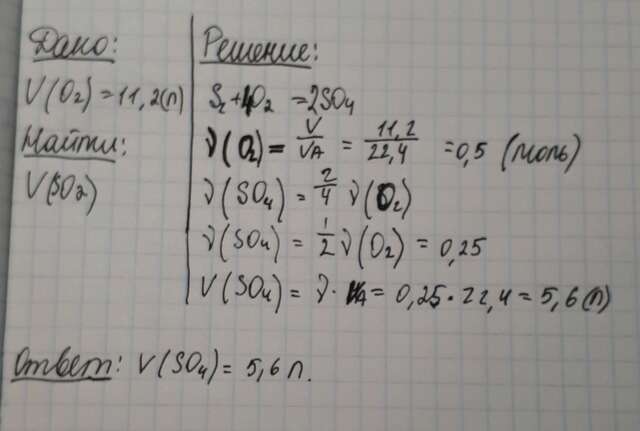 Дано:
V(O₂)=11,2(л)
Найти:
V(SO₂)
Решение:
S₂+4O₂ =2SO₄
ν(O₂)= V/VA = 11,2/22,4 =0,5 (моль)
ν(SO₄) = 2/4 ν(O₂)
ν(SO₄) = 1/2 ν(O₂) = 0,25
V(SO₄) = ν· VA= 0,25·22,4 = 5,6(л)
Ответ: V(SO₄)= 5,6 л.